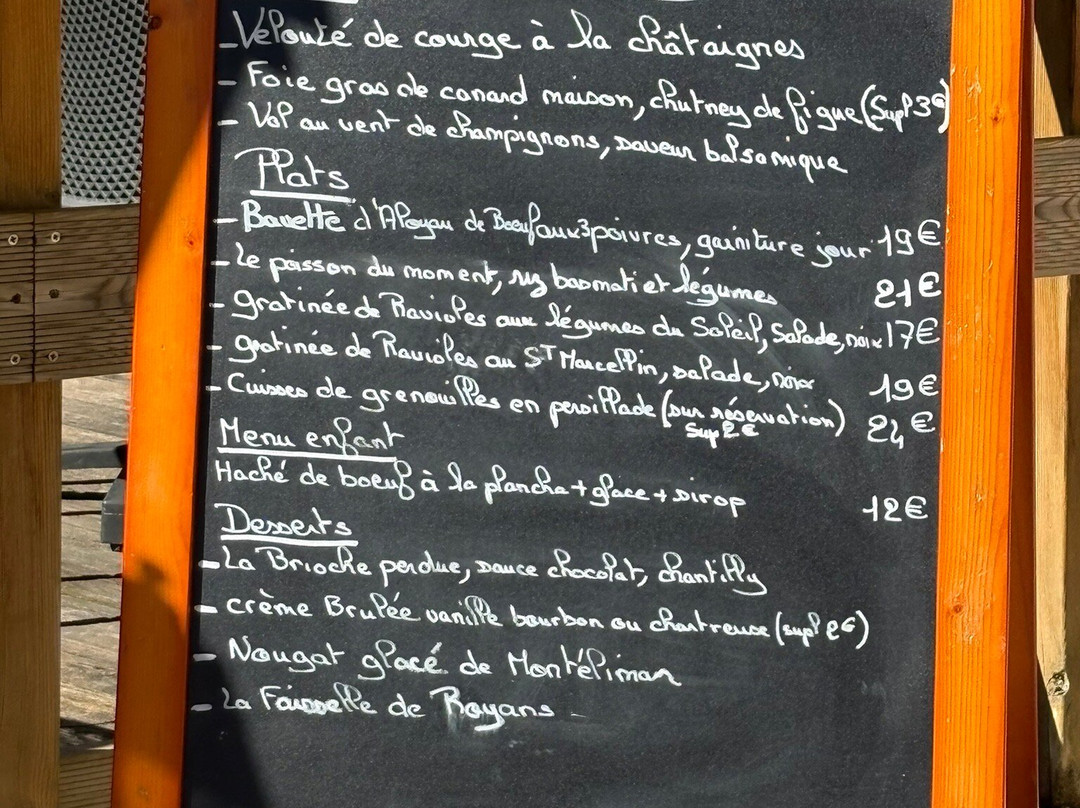 - Velouté de courge à la châtaignes
- Foie gras de canard maison, chutney de figue (Supl 3€)
- Vol au vent de champignons, saveur balsamique
Plats
- Bavette d'Aloyau de Boeuf aux 3 poivres, gainiture jour 19€
- Le poisson du moment, riz basmati et légumes 21€
- gratinée de Ravioles aux légumes du Soleil, Salade, noix 17€
- gratinée de Ravioles au ST Marcellin, salade, noix 19€
- Cuisses de grenouilles en persillade (sur réservation) 24€
Sup 2€
Menu enfant
Haché de boeuf à la plancha + glace + sirop 12€
Desserts
- La Brioche perdue, sauce chocolat, chantilly
- crème Brulée vanille bourbon ou chartreuse (supl 2€)
- Nougat glacé de Montélimar
- La Faisselle de Royans -